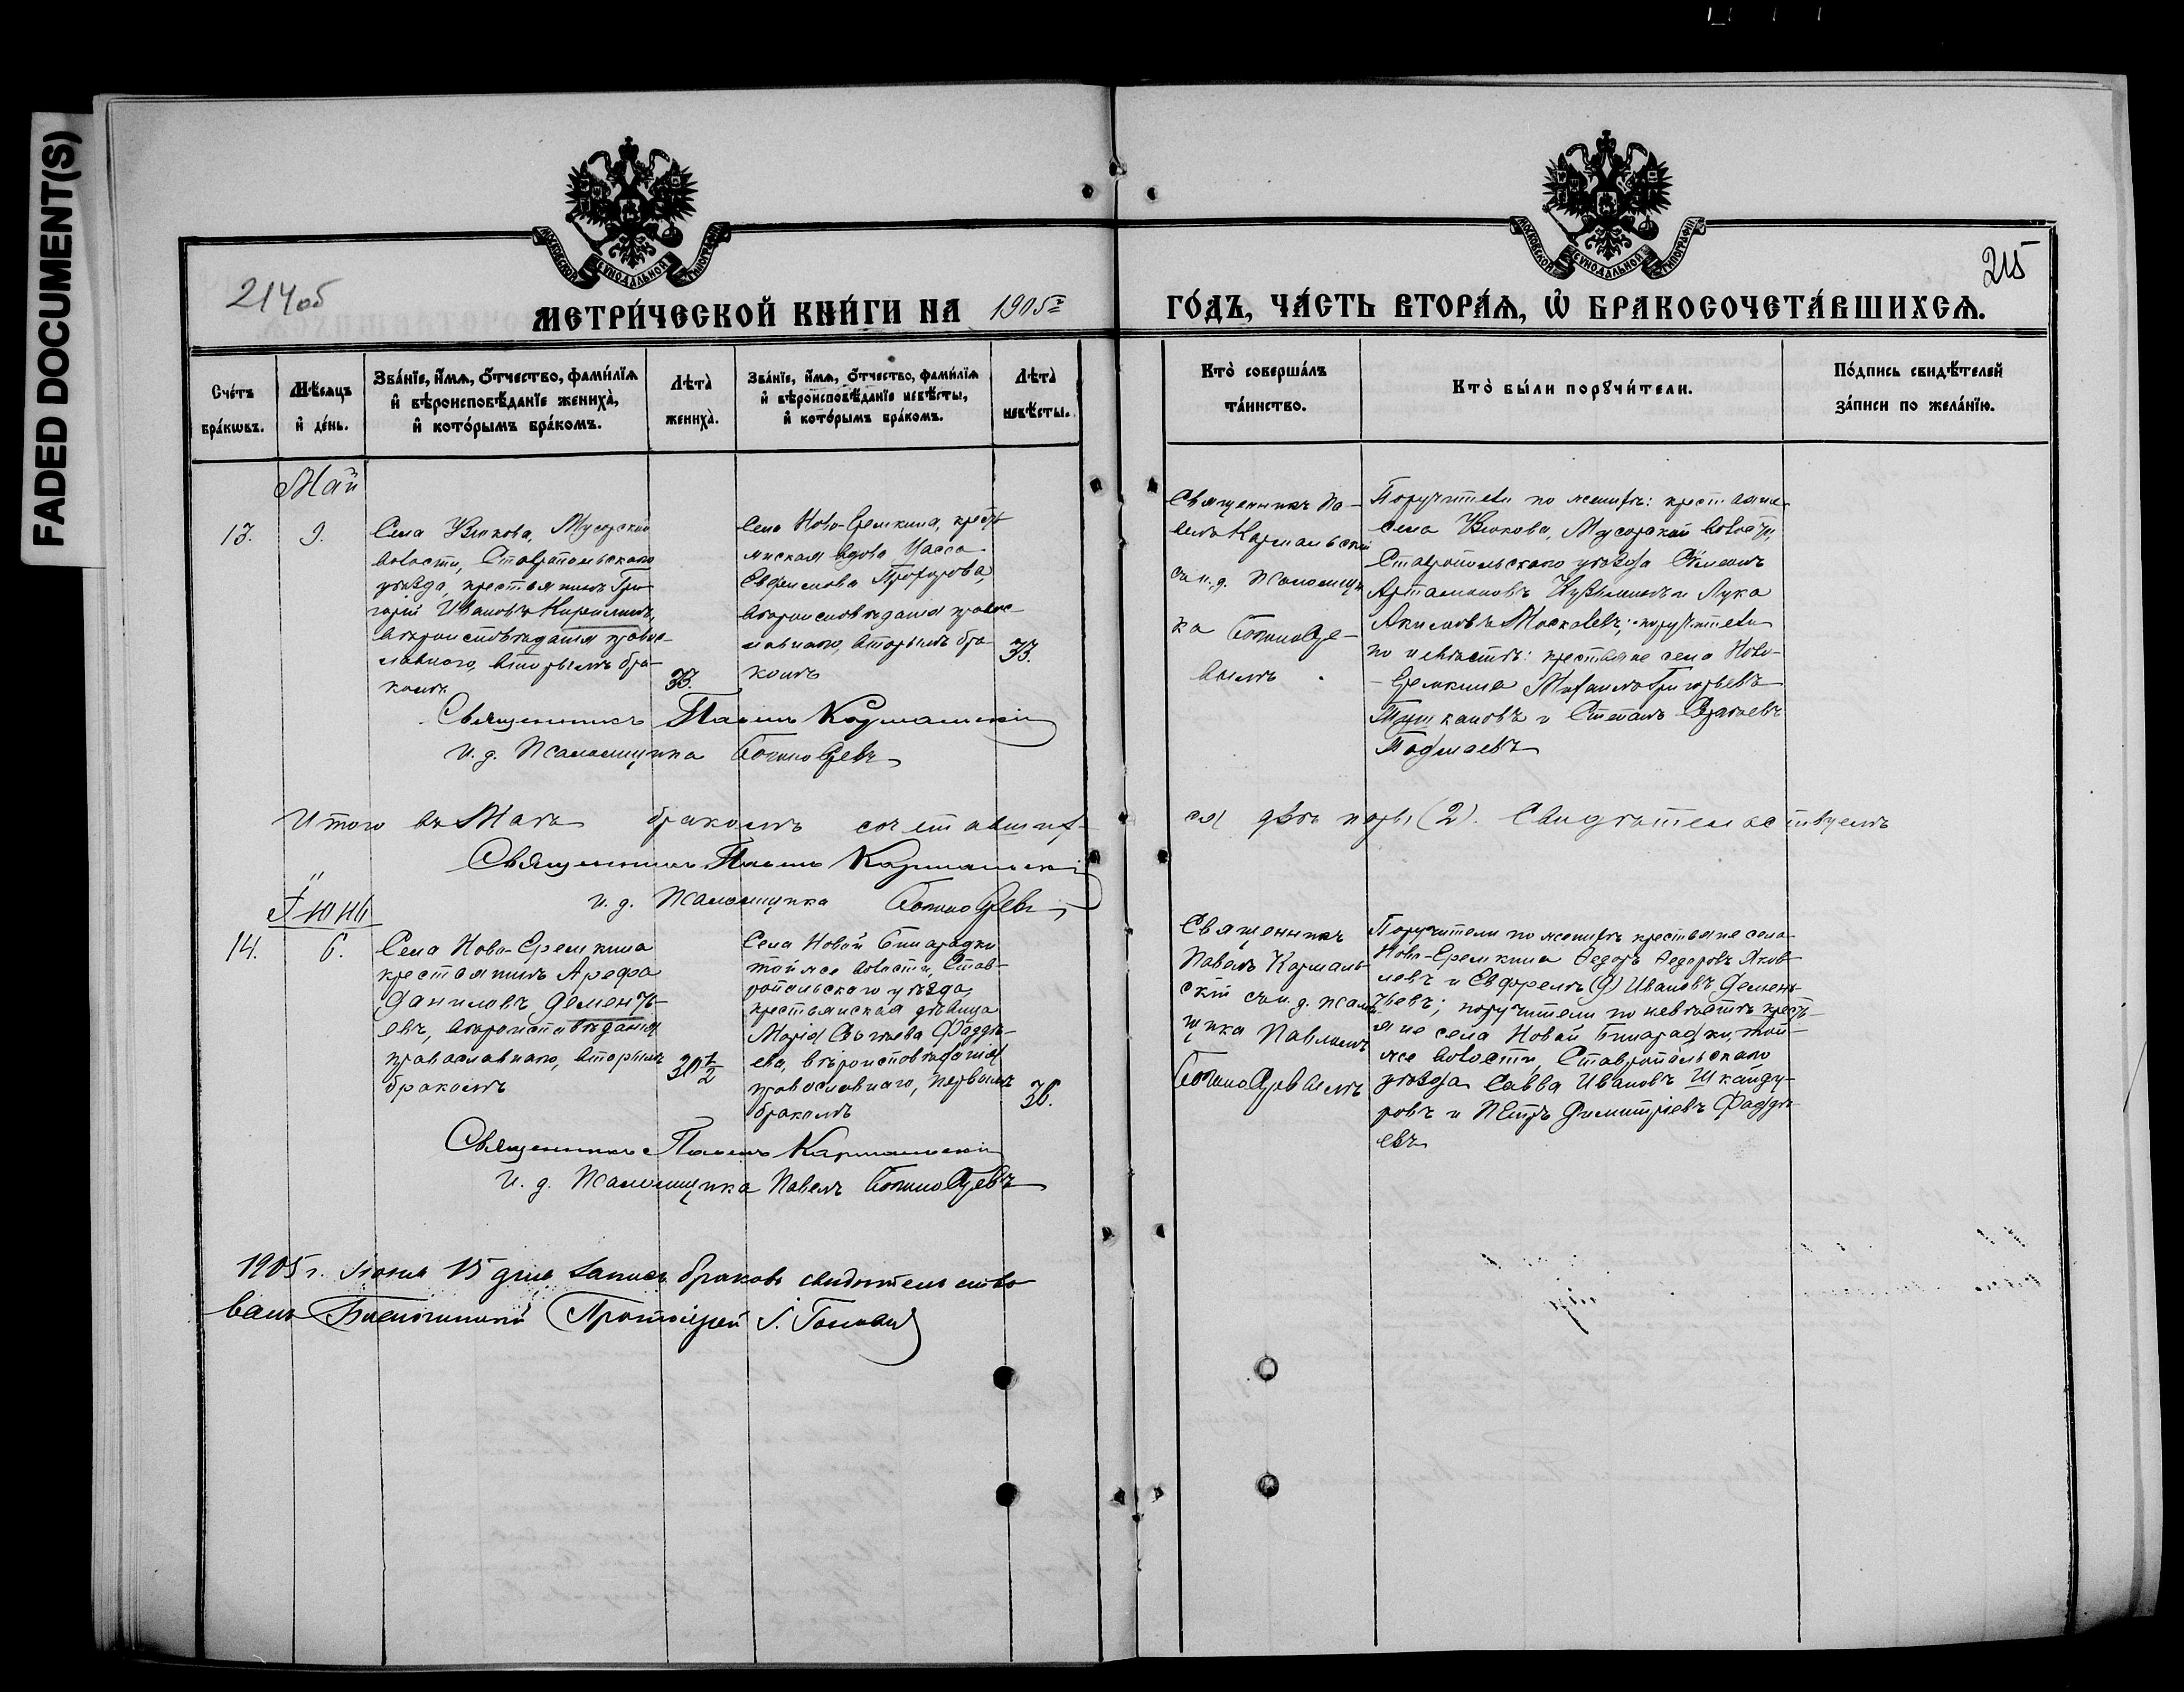 FADED DOCUMENT(S)
214об
215
МОСКОВСКОЙ СѴНОДАЛЬНОЙ ТИПОГРАФІИ
МОСКОВСКОЙ СѴНОДАЛЬНОЙ ТИПОГРАФІИ
МЕТРИ́ЧЕСКОЙ КНИ́ГИ НА 1905 г. ГО́ДЪ, ЧА́СТЬ ВТОРА́Ѧ, Ѽ БРАКОСОЧЕТА́ВШИХСѦ.
Сче́тъ
бра́кѡвъ.
Мѣ́сяцъ
и҆ де́нь.
Зва́нїе, и҆́мѧ, ѻ҆́тчество, фами́лїѧ
и҆ вѣроисповѣ́данїе жениха̀,
и҆ кото́рымъ бра́комъ.
Лѣта̀
жениха̀.
Зва́нїе, и҆́мѧ, ѻ҆́тчество, фами́лїѧ
и҆ вѣроисповѣ́данїе невѣ́сты,
и҆ кото́рымъ бра́комъ.
Лѣта̀
невѣ́сты.
Кто̀ соверша́лъ
та́инство.
Кто̀ бы́ли порꙋчи́тели.
По́дпись свидѣ́телей
за́писи по жела́нїю.
Май
13.
9.
Села Узюкова, Мусорской
волости, Ставропольскаго
уѣзда, крестьянинъ Гри-
горій Ивановъ
вѣроисповѣданія правос-
лавнаго, вторымъ бра-
комъ.
33.
Села Ново-Еремкина, кресть-
янская вдова
Ефимова Прохорова,
вѣроисповѣданія правос-
лавнаго, вторымъ бра-
комъ
33.
Священникъ Па-
велъ Кармальскій
съ и. д. псаломщи-
ка
Поручители по женихѣ: крестьяне
села Узюкова, Мусорской волости,
Ставропольскаго уѣзда Симеонъ
Артамоновъ Кузьминъ и Лука
Акимовъ Москалевъ; поручители
по невѣстѣ: крестьяне села Ново-
-Еремкина Михаилъ Григорьевъ
и Степанъ
Священникъ Павелъ Кармальскій
И. д. Псаломщика
Итого въ Маѣ бракомъ сочетавших-
ся двѣ пары (2). Свидѣтельствуемъ
Священникъ Павелъ Кармальскій
и. д. Псаломщика
Іюнь
14.
6.
Села Ново-Еремкина
крестьянинъ Арефа
Даниловъ Дементь-
евъ, вѣроисповѣданія
православнаго, вторымъ
бракомъ
30 1/2
Села Новой Бинарадки
той же волости, Став-
ропольскаго уѣзда,
крестьянская дѣвица
Марія Савельева Фаддѣ-
ева, вѣроисповѣданія
православнаго, первымъ
бракомъ
36.
Священникъ
Павелъ Кармаль-
скій съ и. д. псалом-
щика Павломъ
Поручители по женихѣ крестьяне села
Ново-Еремкина Ѳедоръ Ѳедоровъ Яков-
левъ и Евфремъ (9) Ивановъ Демень-
тьевъ; поручители по невѣстѣ кресть-
яне села Новой Бинарадки, той-
же волости, Ставропольскаго
уѣзда Савва Ивановъ Шкайду-
ровъ и Петръ Димитріевъ Фаддѣ-
евъ
Священникъ Павелъ Кармальскій
И. д. Псаломщика Павелъ
1905 г. Іюня 15 дня запись браковъ свидѣтельство-
валъ Благочинный Протоіерей І.